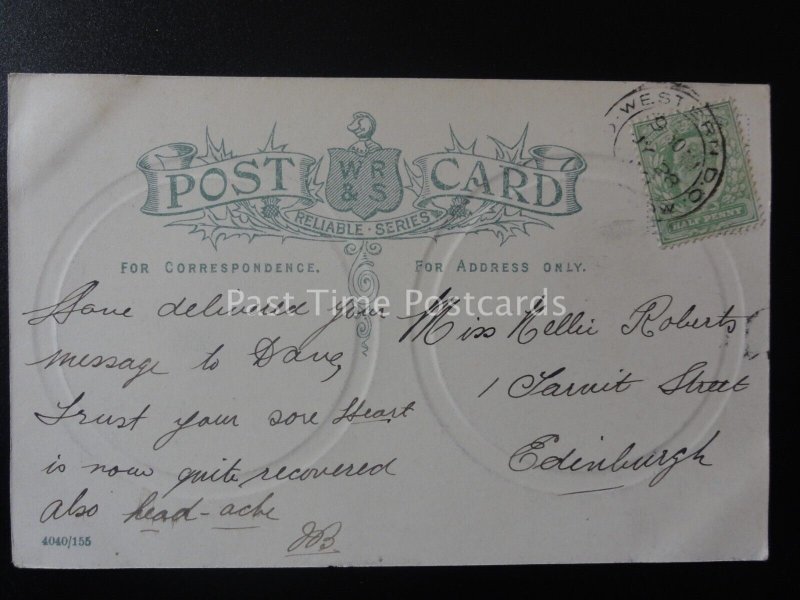 POST CARD
W R
& S
RELIABLE · SERIES
FOR CORRESPONDENCE.
FOR ADDRESS ONLY.
Have delivered your
message to Dave,
Trust your sore Heart
is now quite recovered
also head-ache
JB.
Miss Nellie Roberts
1 Tarvit Street
Edinburgh
WESTERN D.O.
HALF PENNY
4040/155
Past Time Postcards